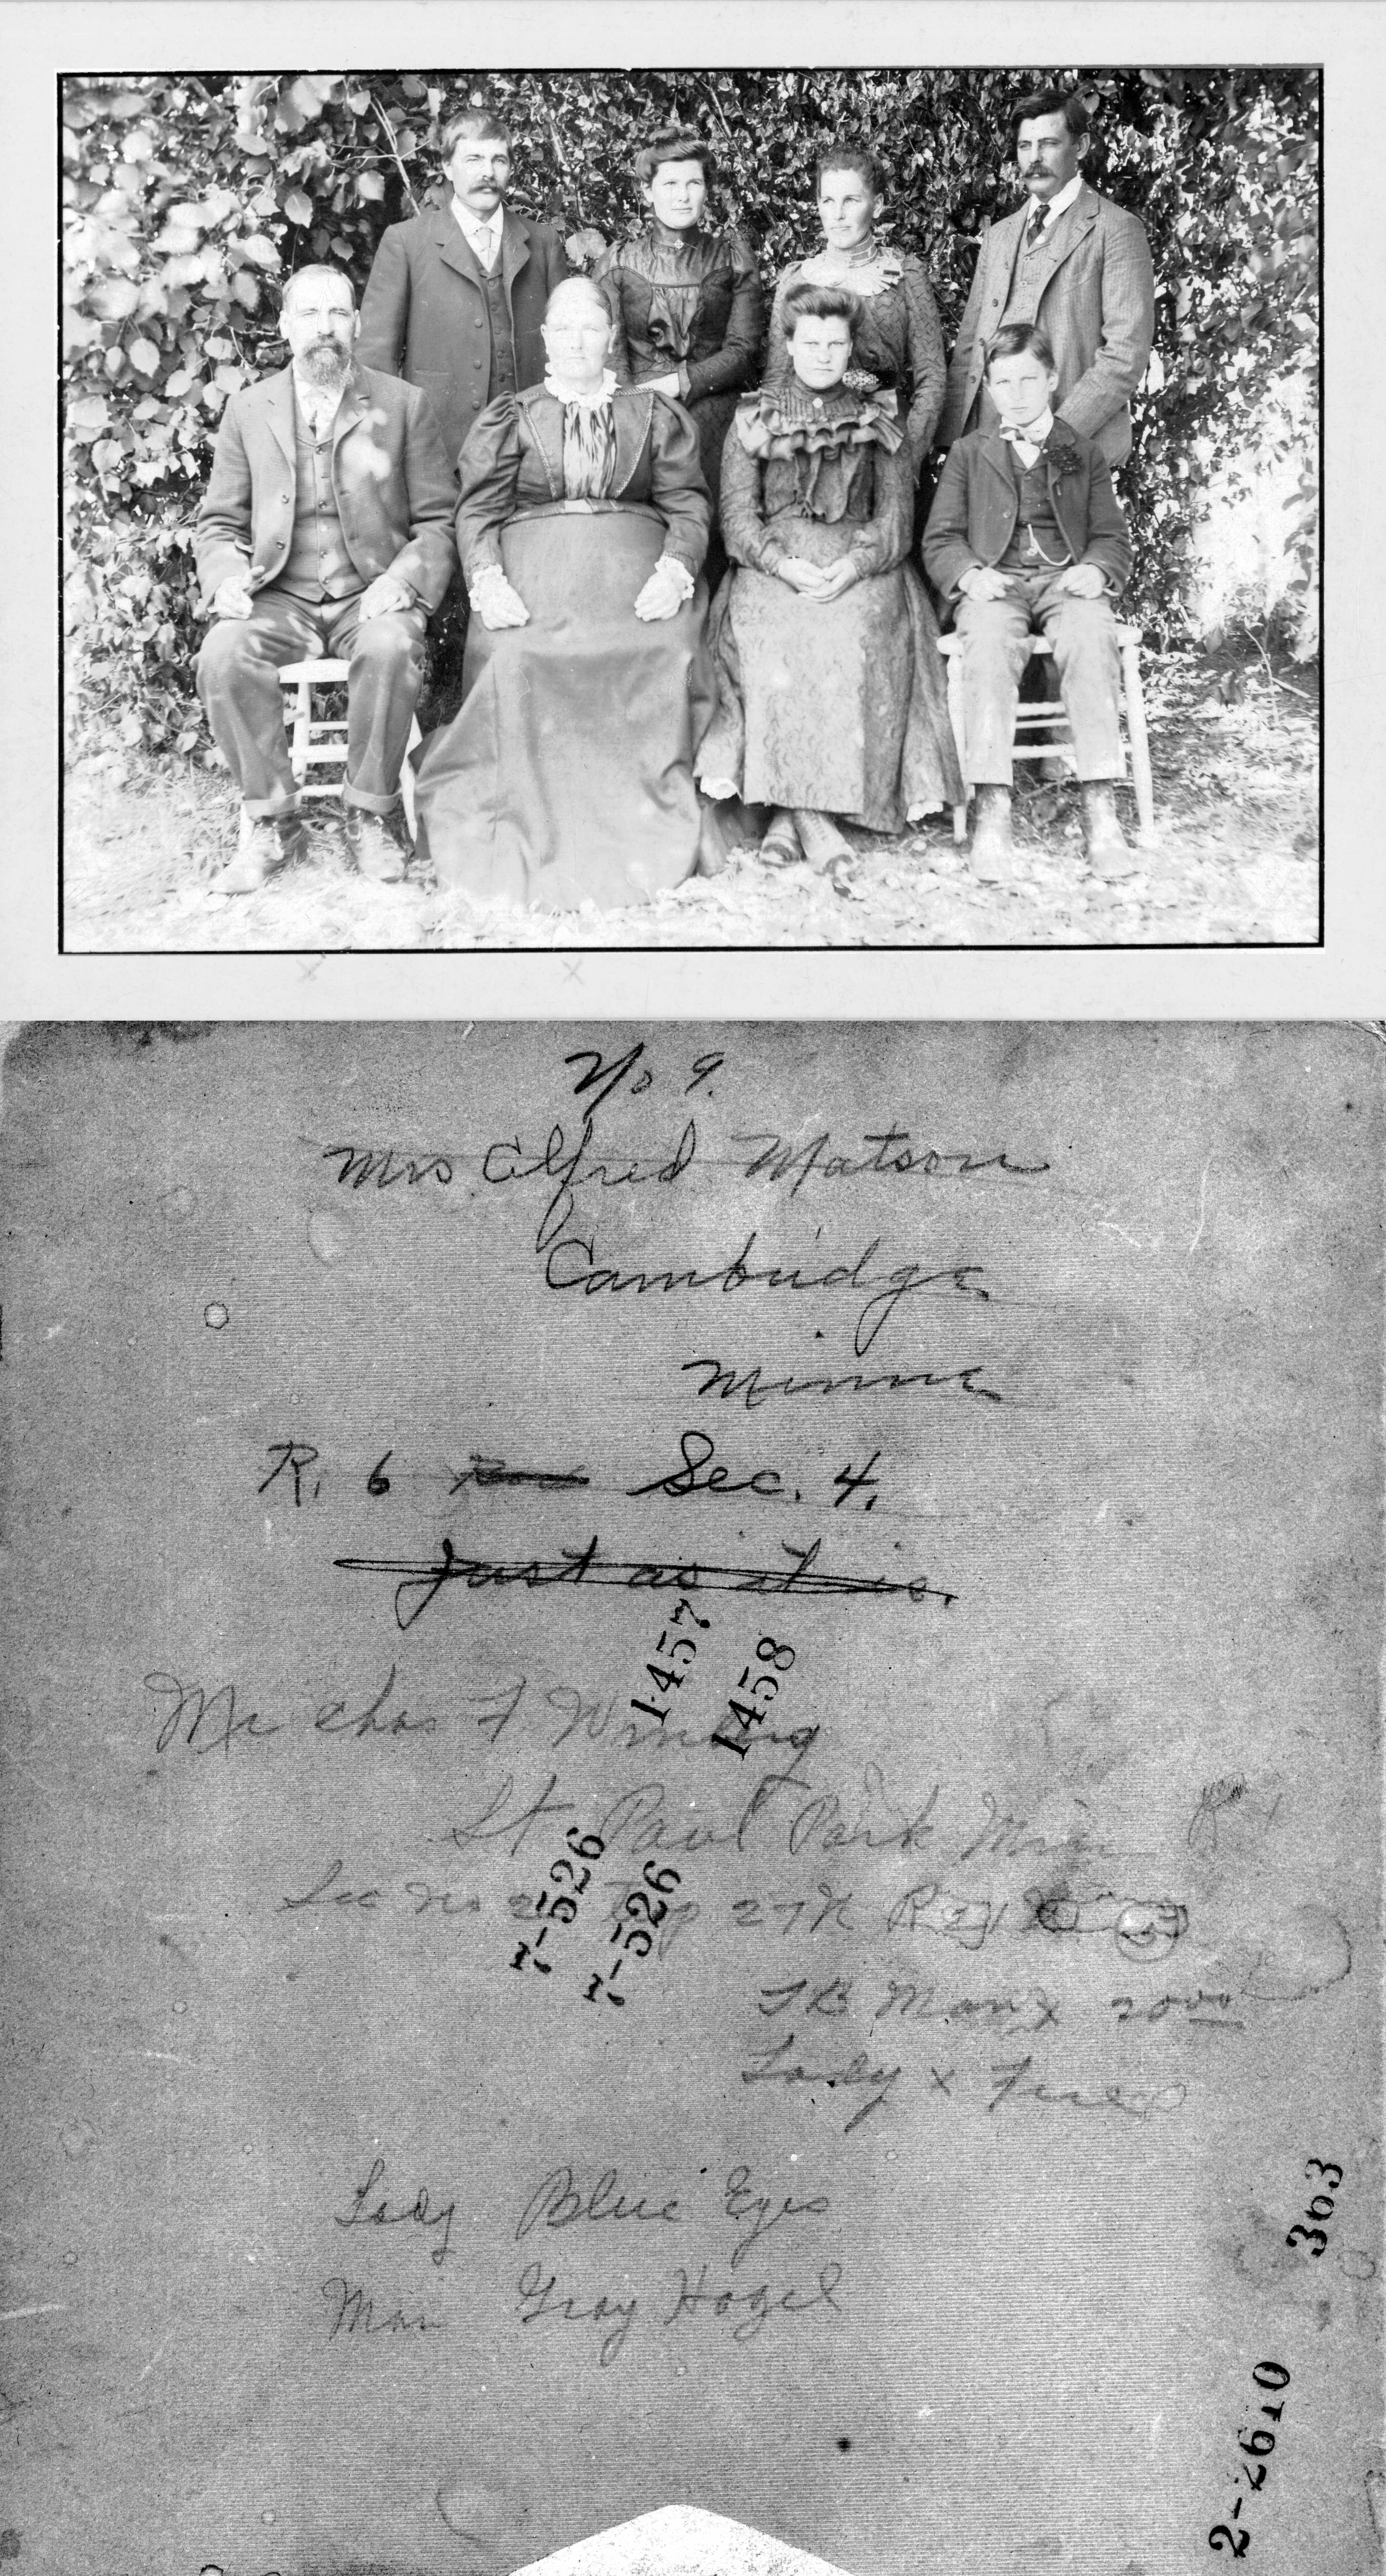 No 9.
Mrs Alfred Matson
Cambridge
Minne
R. 6 Sec. 4.
Just as it is.
1457
1458
Mr Chas F.
St Paul Park Minn
1-526
1-526
Sec No 27 N R
Man x 2000
Lady x
Lady Blue Eyes
Man Gray Hazel
363
2-2610